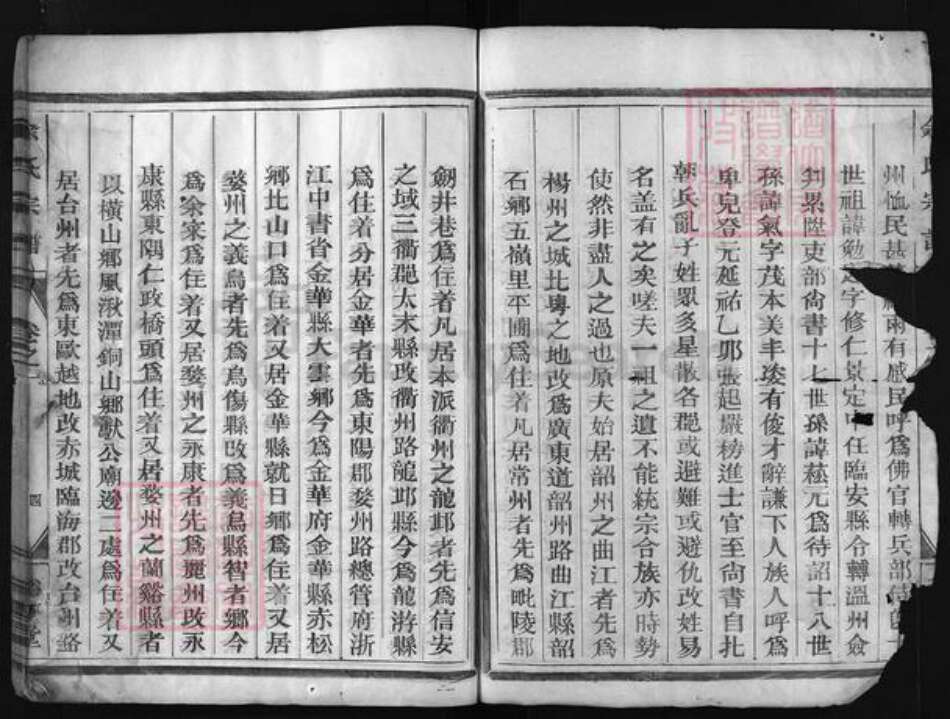 州恤民甚
雨有感民呼為佛官轉兵部
世祖諱勉
字修仁景定
任臨安縣令轉溫州僉
判累陞吏部尚書十七世孫諱菘元為待詔十八世
孫諱氣字茂本美丰姿有俊才辭謙下人族人呼為
卑兒登元延祐乙卯張起巖榜進士官至尚書自扎
朝兵亂子姓眾多星散各郡或避難或避仇改姓易
名盖有之矣嗟夫一祖之遺不能統宗合族亦時勢
使然非盡人之過也原夫始居韶州之曲江者先為
楊州之城比粵之地改為廣東道韶州路曲江縣韶
石鄉五嶺里平圃為住着凡居常州者先為毗陵郡
劒井巷為住着凡居本派衢州之龍邱者先為信安
之域三衢郡太末縣改衢州路龍邱縣今為龍游縣
為住着分居金華者先為東陽郡婺州路總管府浙
江中書省金華縣大雲鄉今為金華府金華縣赤松
鄉比山口為住着又居金華縣就日鄉為住着又居
婺州之義烏者先為烏傷縣改為義烏縣智者鄉今
為余家為住着又居婺州之永康者先為麗州改永
康縣東隅仁政橋頭為住着又居婺州之蘭谿縣者
以橫山鄉風湫潭銅山鄉獻公廟邊二處為住着又
居台州者先為東歐越地改赤城臨海郡改台州路
余氏宗譜
卷之一
四
堂